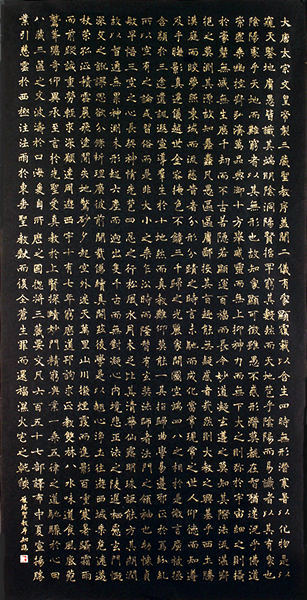 大唐太宗文皇帝製三藏聖教序蓋聞二儀有象顯覆載以含生四時無形潛寒暑以化物是以
窺天鑒地庸愚皆識其端明陰洞陽賢哲罕窮其數然而天地苞乎陰陽而易識者以其有象也
陰陽處乎天地而難窮者以其無形也故知象顯可徵雖愚不惑形潛莫覩在智猶迷況乎佛道
崇虛乘幽控寂弘濟萬品典御十方舉威靈而無上抑神力而無下大之則彌於宇宙細之則攝
於毫釐無滅無生歷千劫而不古若隱若顯運百福而長今妙道凝玄遵之莫知其際法流湛寂
挹之莫測其源故知蠢蠢凡愚區區庸鄙投其旨趣能無疑惑者哉然則大教之興基乎西土騰
漢庭而皎夢照東域而流慈昔者分形分跡之時言未馳而成化當常現常之世人仰德而知遵
及乎晦影歸真遷儀越世金容掩色不鏡三千之光麗象開圖空端四八之相於是微言廣被拯
含類於三途遺訓遐宣導群生於十地然而真教難仰莫能一其旨歸曲學易遵邪正於焉紛糾
所以空有之論或習俗而是非大小之乘乍沿時而隆替有玄奘法師者法門之領袖也幼懷貞
敏早悟三空之心長契神情先苞四忍之行松風水月未足比其清華仙露明珠詎能方其朗潤
故以智通無累神測未形超六塵而迥出隻千古而無對凝心內境悲正法之陵遲栖慮玄門慨
深文之訛謬思欲分條析理廣彼前聞截偽續真開茲後學是以翹心淨土往遊西域乘危遠邁
杖策孤征積雪晨飛途間失地驚砂夕起空外迷天萬里山川撥煙霞而進影百重寒暑躡霜雨
而前蹤誠重勞輕求深願達周遊西宇十有七年窮歷道邦詢求正教雙林八水味道飡風鹿菀
鷲峰瞻奇仰異承至言於先聖受真教於上賢探賾妙門精窮奧業一乘五律之道馳驟於心田
八藏三篋之文波濤於口海爰自所歷之國總將三藏要文凡六百五十七部譯布中夏宣揚勝
業引慈雲於西極注法雨於東垂聖教缺而復全蒼生罪而還福濕火宅之乾燄